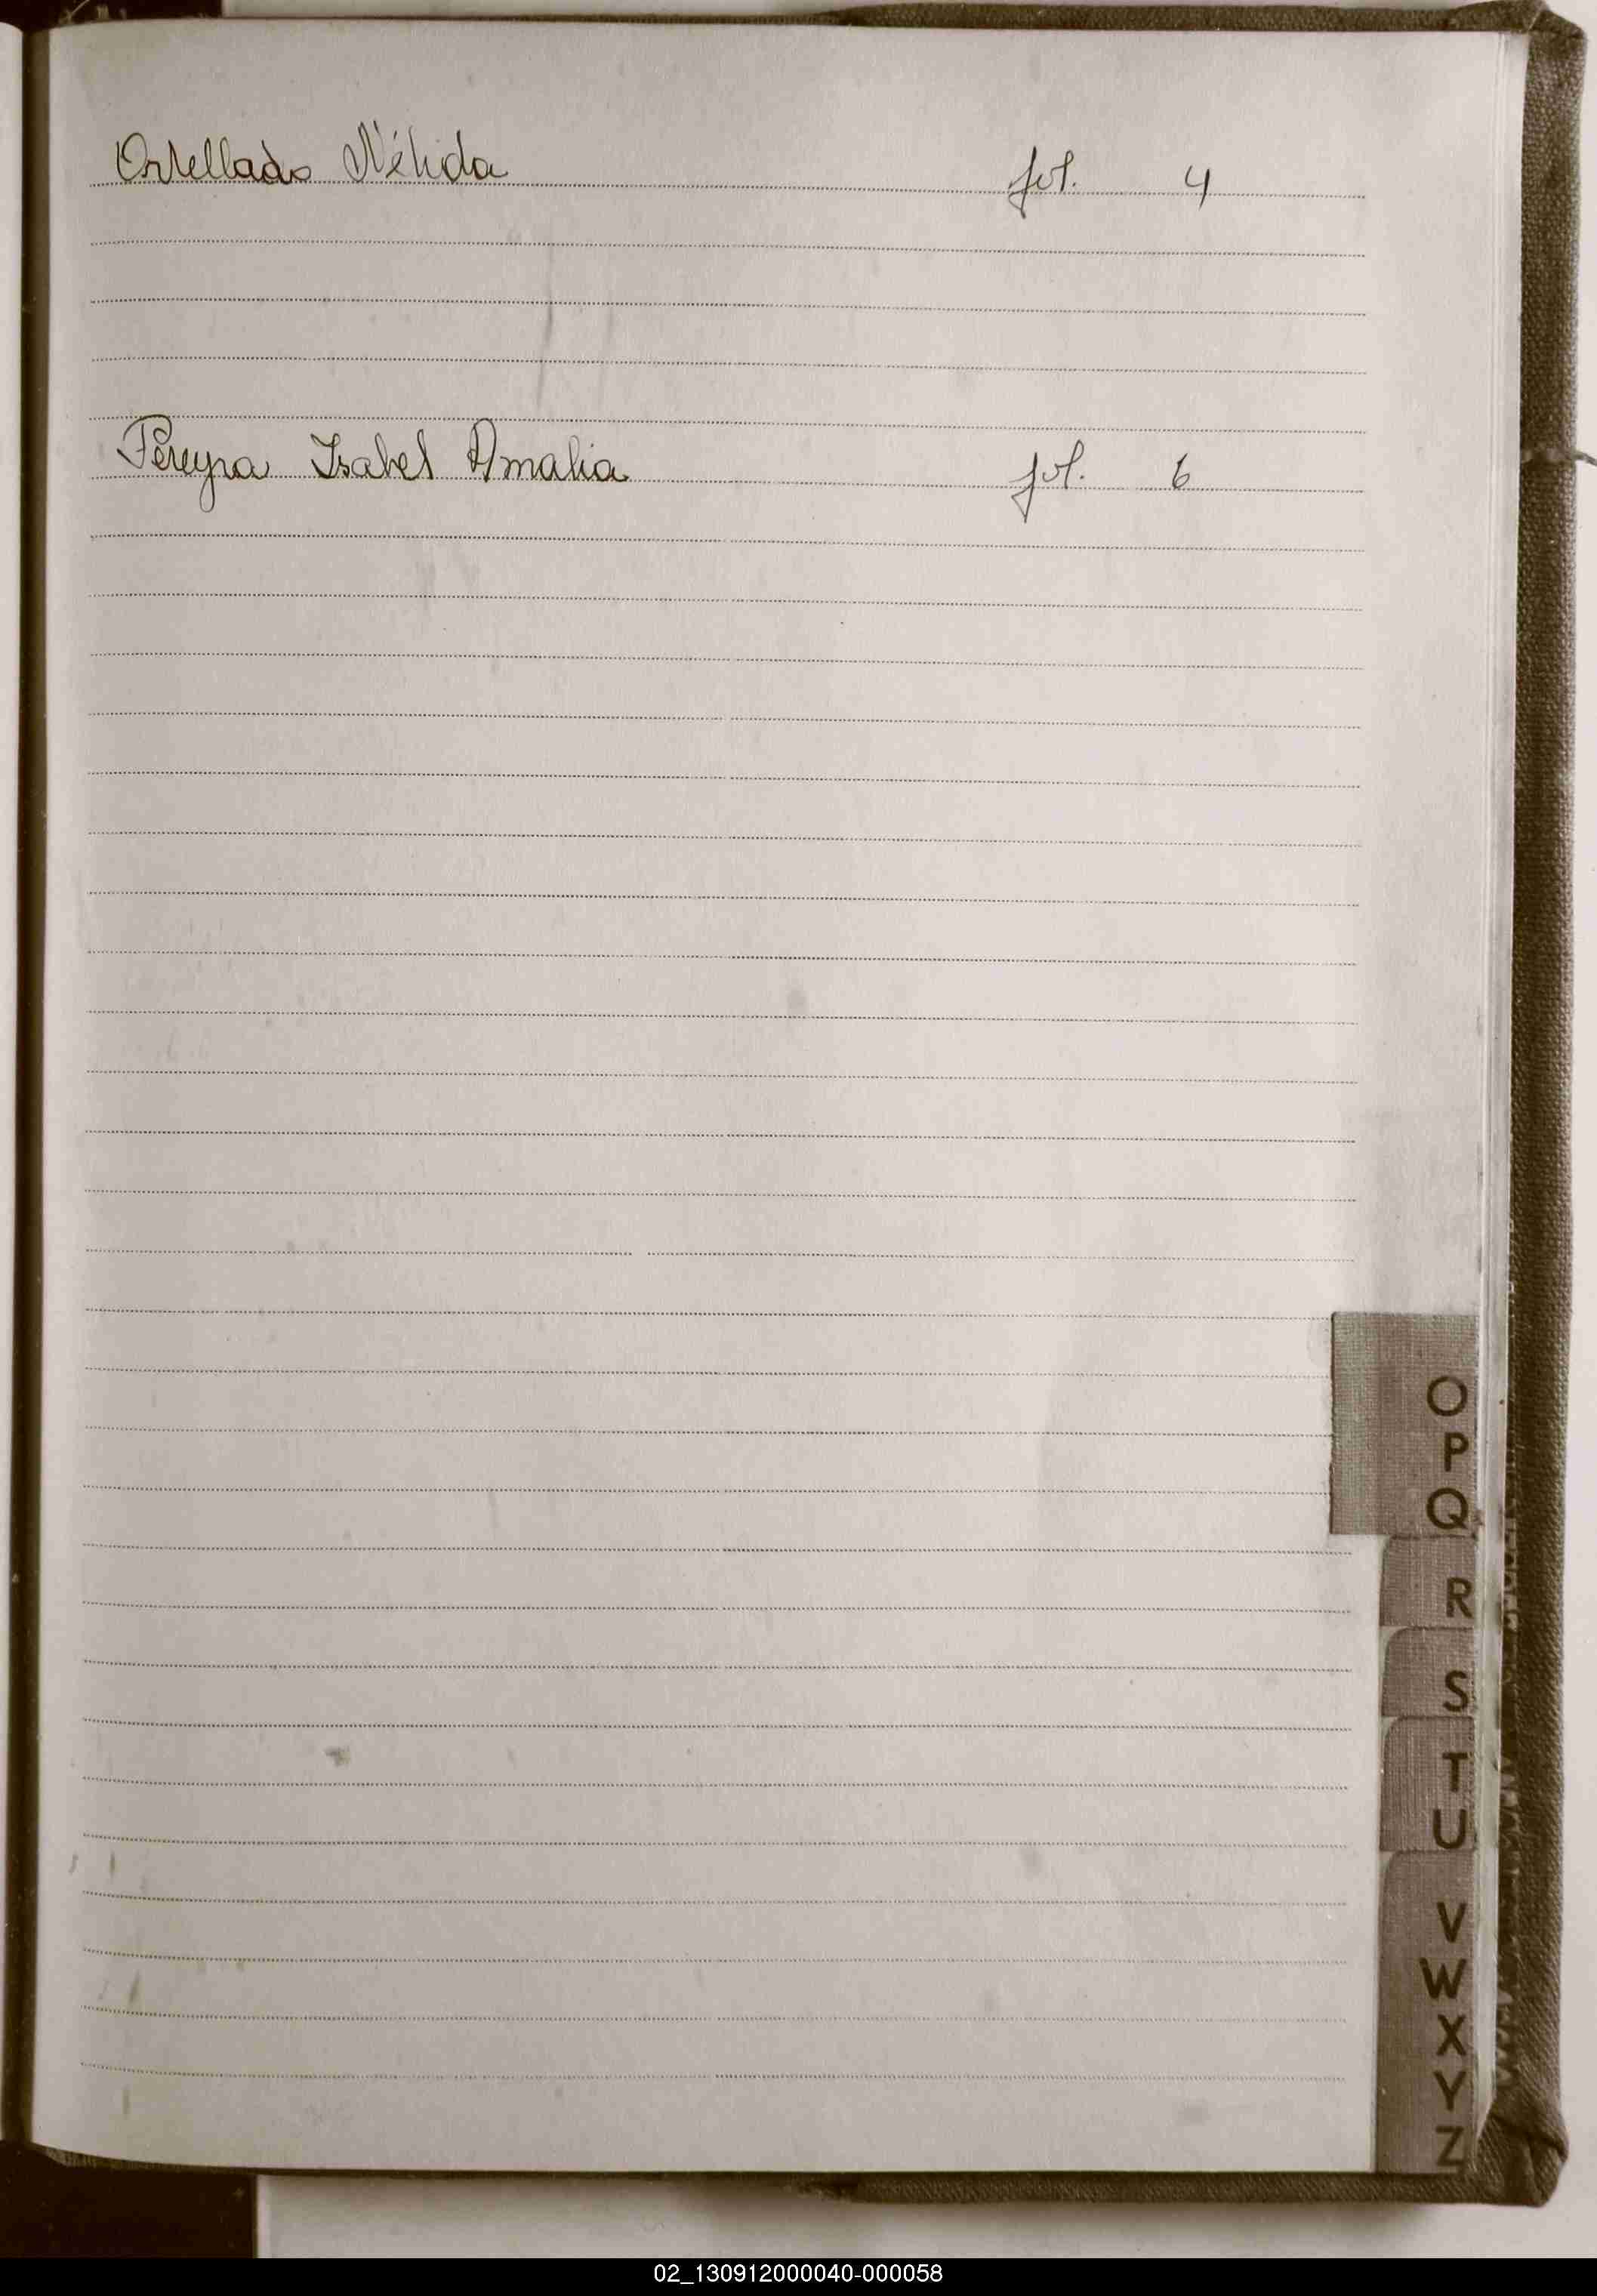 Ortellado Nélida fol. 4
Pereyra Isabel Amalia fol. 6
O
P
Q
R
S
T
U
V
W
X
Y
Z
02_130912000040-000058